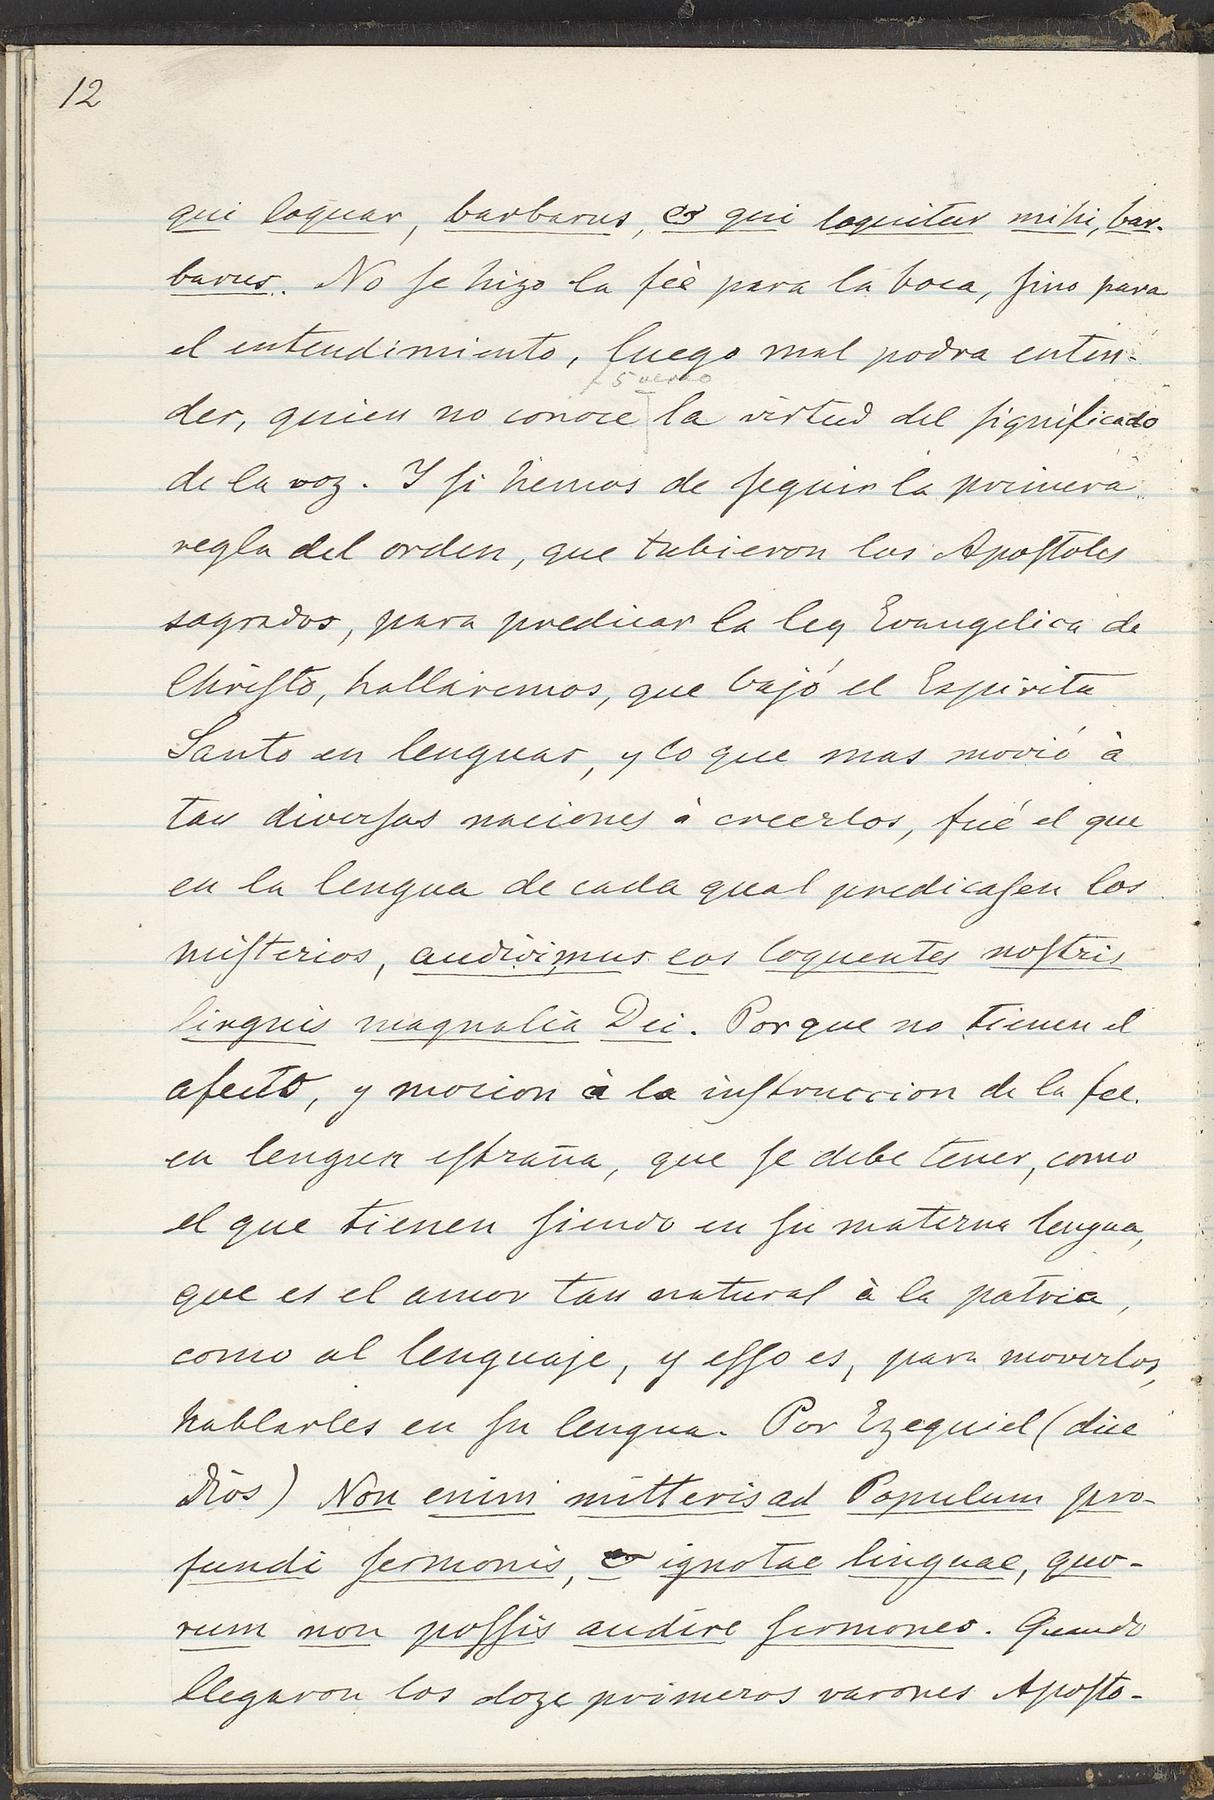 12
qui loquar, barbarus, & qui loquitur mihi, bar-
barus. No ſe hizo la feè para la boca, ſino para
el entendimiento, luego mal podra enten-
f 5 verso
der, quien no conoce la virtud del ſignificado
de la voz. Y ſi hemos de ſeguir la primera
regla del orden, que tubieron los Apoſtoles
sagrados, para predicar la ley Evangelica de
Chriſto, hallaremos, que bajó el Espiritu
Santo en lenguas, y lo que mas movió à
tan diverſas naciones à creerlos, fué el que
en la lengua de cada qual predicaſen los
miſterios, audivimus eos loquentes noſtris
linguis magnalia Dei. Porque no tienen el
afecto, y mocion à la inſtruccion de la fee
en lengua eſtraña, que ſe debe tener, como
el que tienen ſiendo en ſu materna lengua,
que es el amor tan natural à la patria,
como al lenguaje, y eſſo es, para moverlos,
hablarles en ſu lengua. Por Ezequiel (dice
Dios) Non enim mitteris ad Populum pro-
fundi ſermonis, & ignotae linguae, quo-
rum non poſſis audire ſermones. Quando
llegaron los doze primeros varones Apoſto-